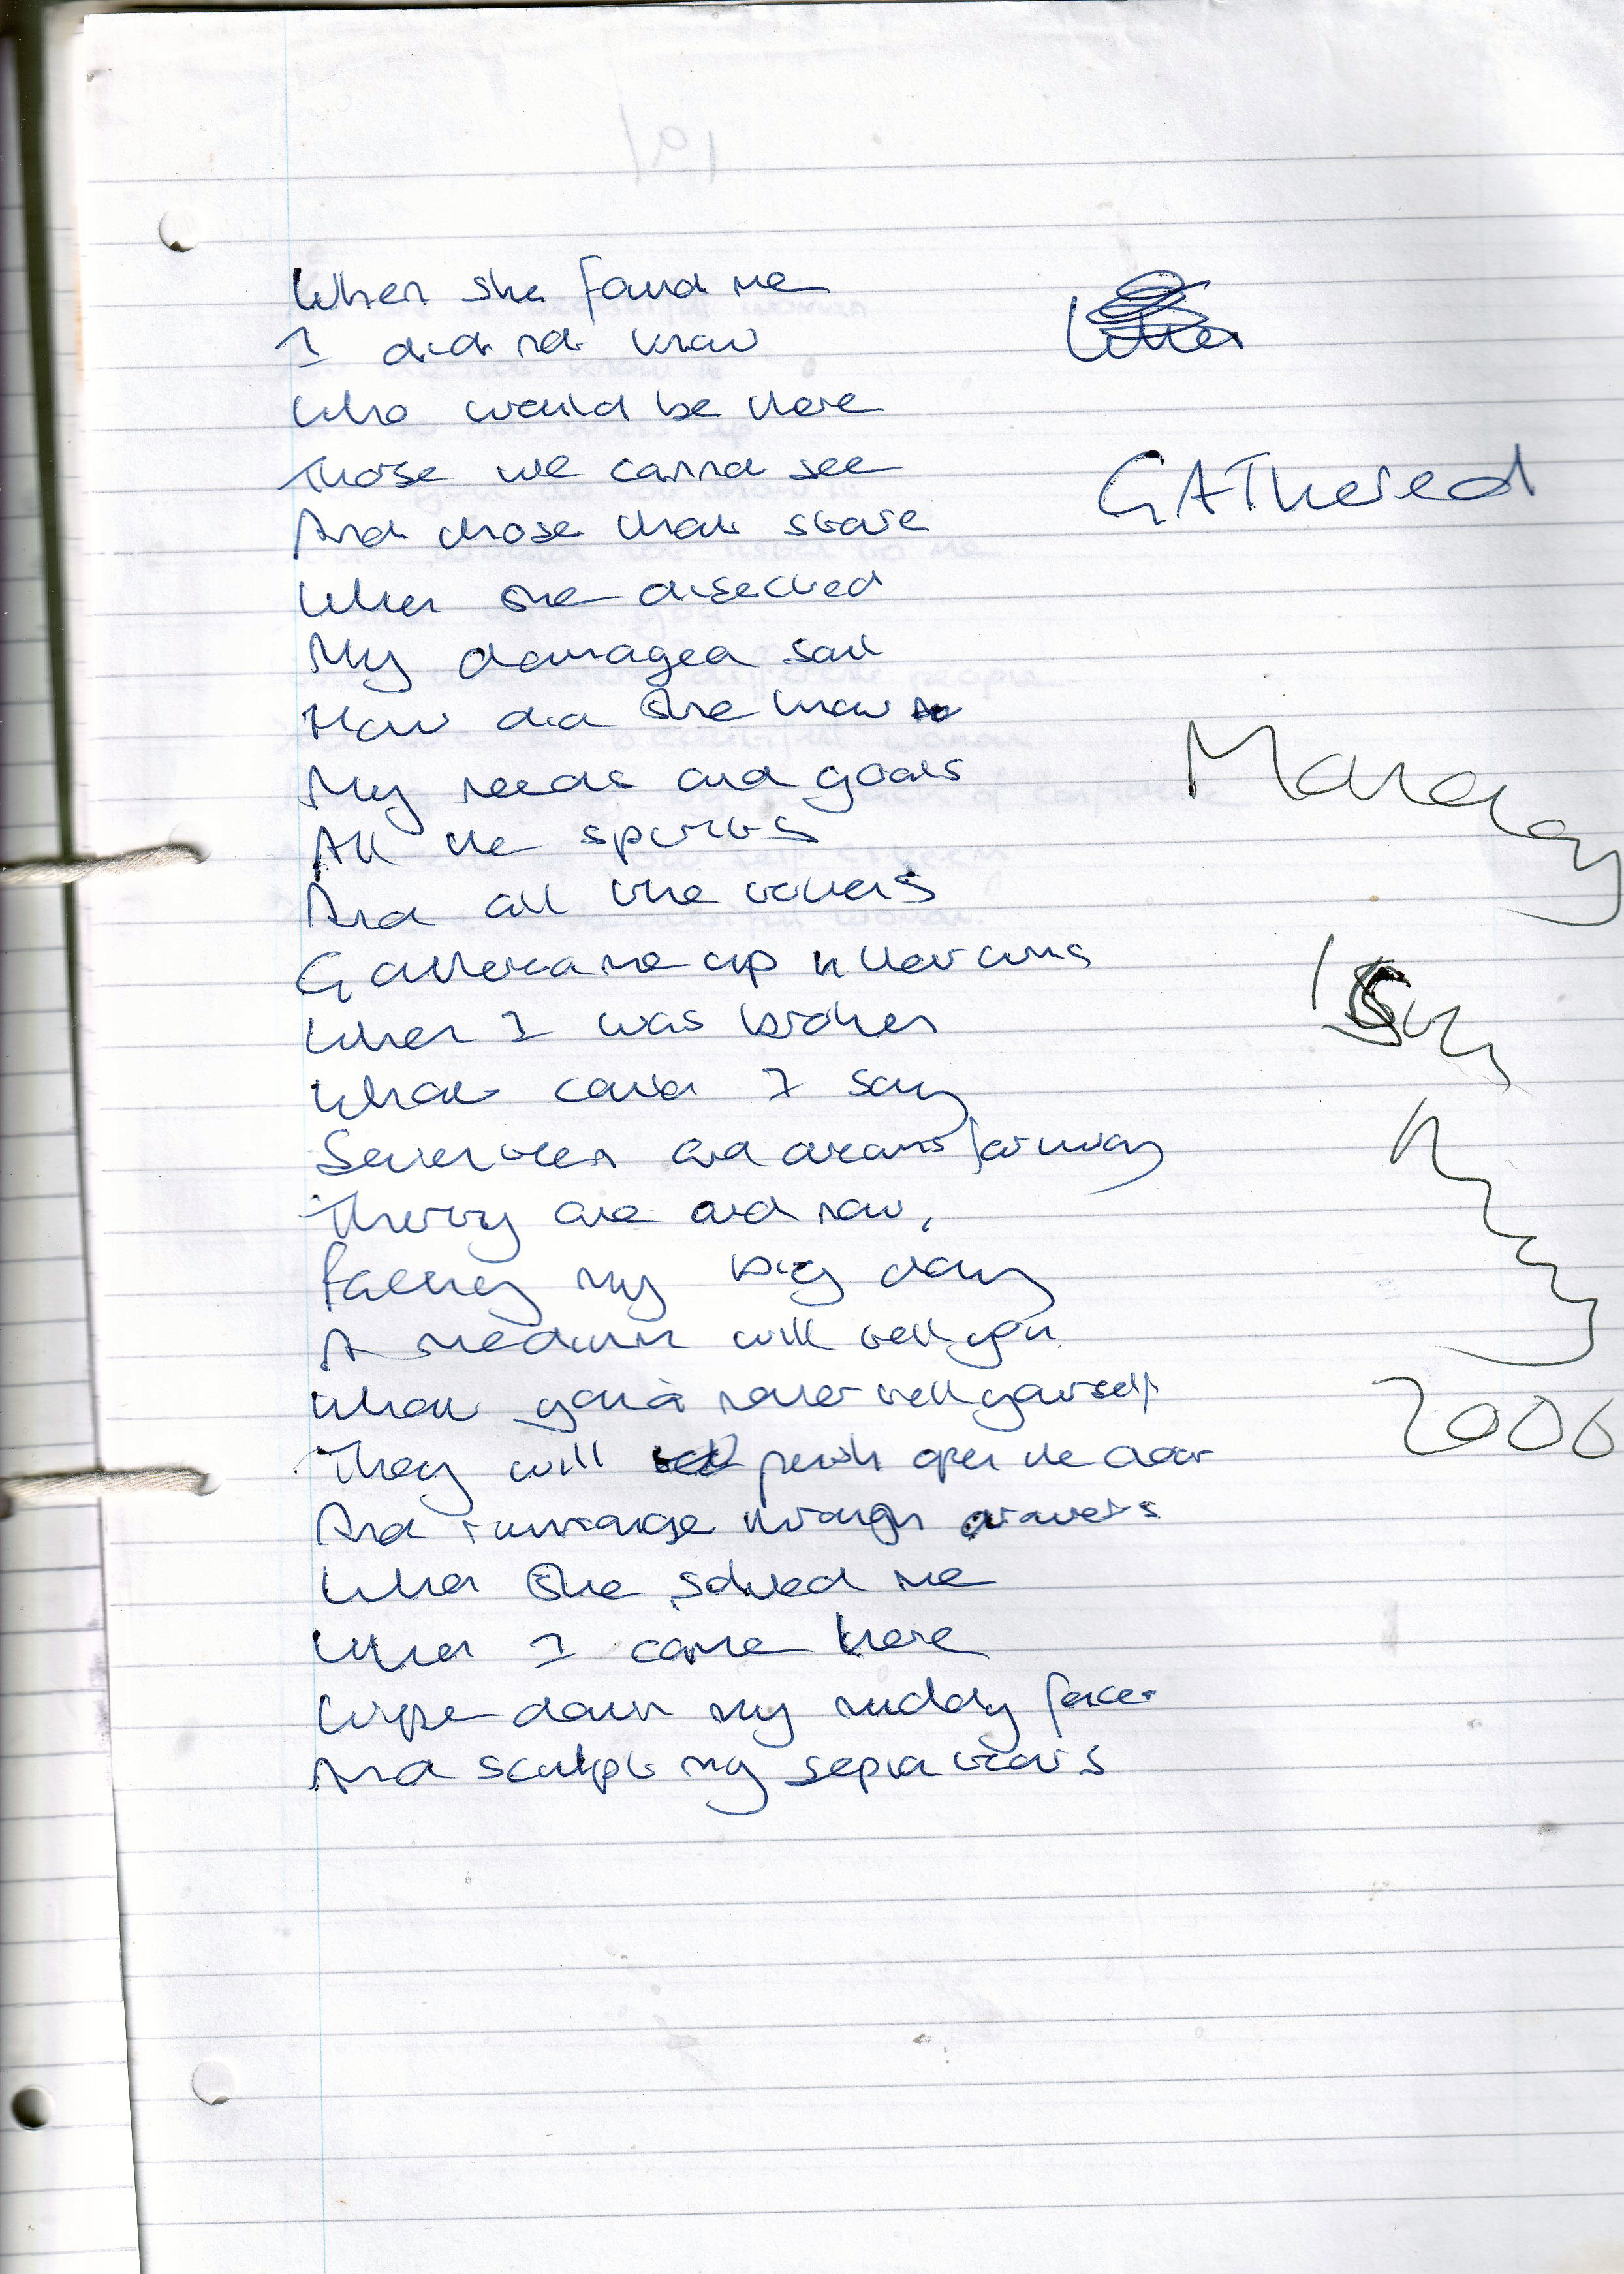 When she found me
I did not know
Who would be there
Those we cannot see
And those that stare
When she disected
My damaged soul
How did she know
My needs and goals
All the spirits
And all the others
Gathered me up in their arms
When I was broken
What could I say
Seventeen and dreams far away
Thirty one and now,
Facing my big day
A medium will tell you
What you'd never tell yourself
They will push open the door
And rummage through drawers
When she solved me
When I came here
Wipe down my muddy face
And sculpt my sepia tears
GAThered
Monday
2006